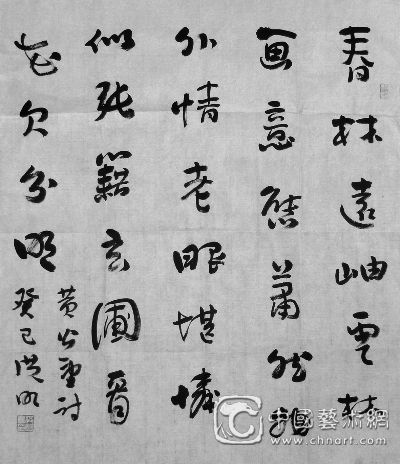 春林遠岫雲林
画意態蕭然物
外情老眼堪憐
似張籍玄圃看
花欠分明
黄公望詩
癸巳
中國藝術網
www.chnart.com